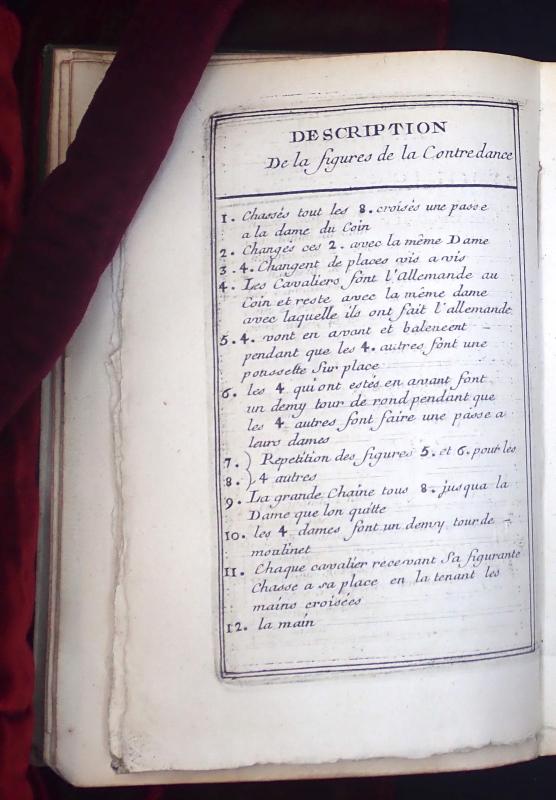 DESCRIPTION
De la figures de la Contredance
1. Chassés tout les 8. croisés une passe
a la dame du Coin
2. Changés ces 2. avec la même Dame
3. 4. Changent de places vis a vis
4. Les Cavaliers font l'Allemande au
Coin et reste avec la même dame
avec laquelle ils ont fait l'allemande
5. 4. vont en avant et balencent –
pendant que les 4. autres font une
poussette sur place
6. les 4 qui ont estés en avant font
un demy tour de rond pendant que
les 4 autres font faire une passe a
leurs dames
7. } Repetition des figures 5. et 6. pour les
8. } 4 autres
9. La grande Chaine tous 8. jusqua la
Dame que lon quitte
10. les 4 dames font un demy tour de –
moulinet
11. Chaque cavalier recevant Sa figurante
Chasse a sa place en la tenant les
mains croisées
12. la main